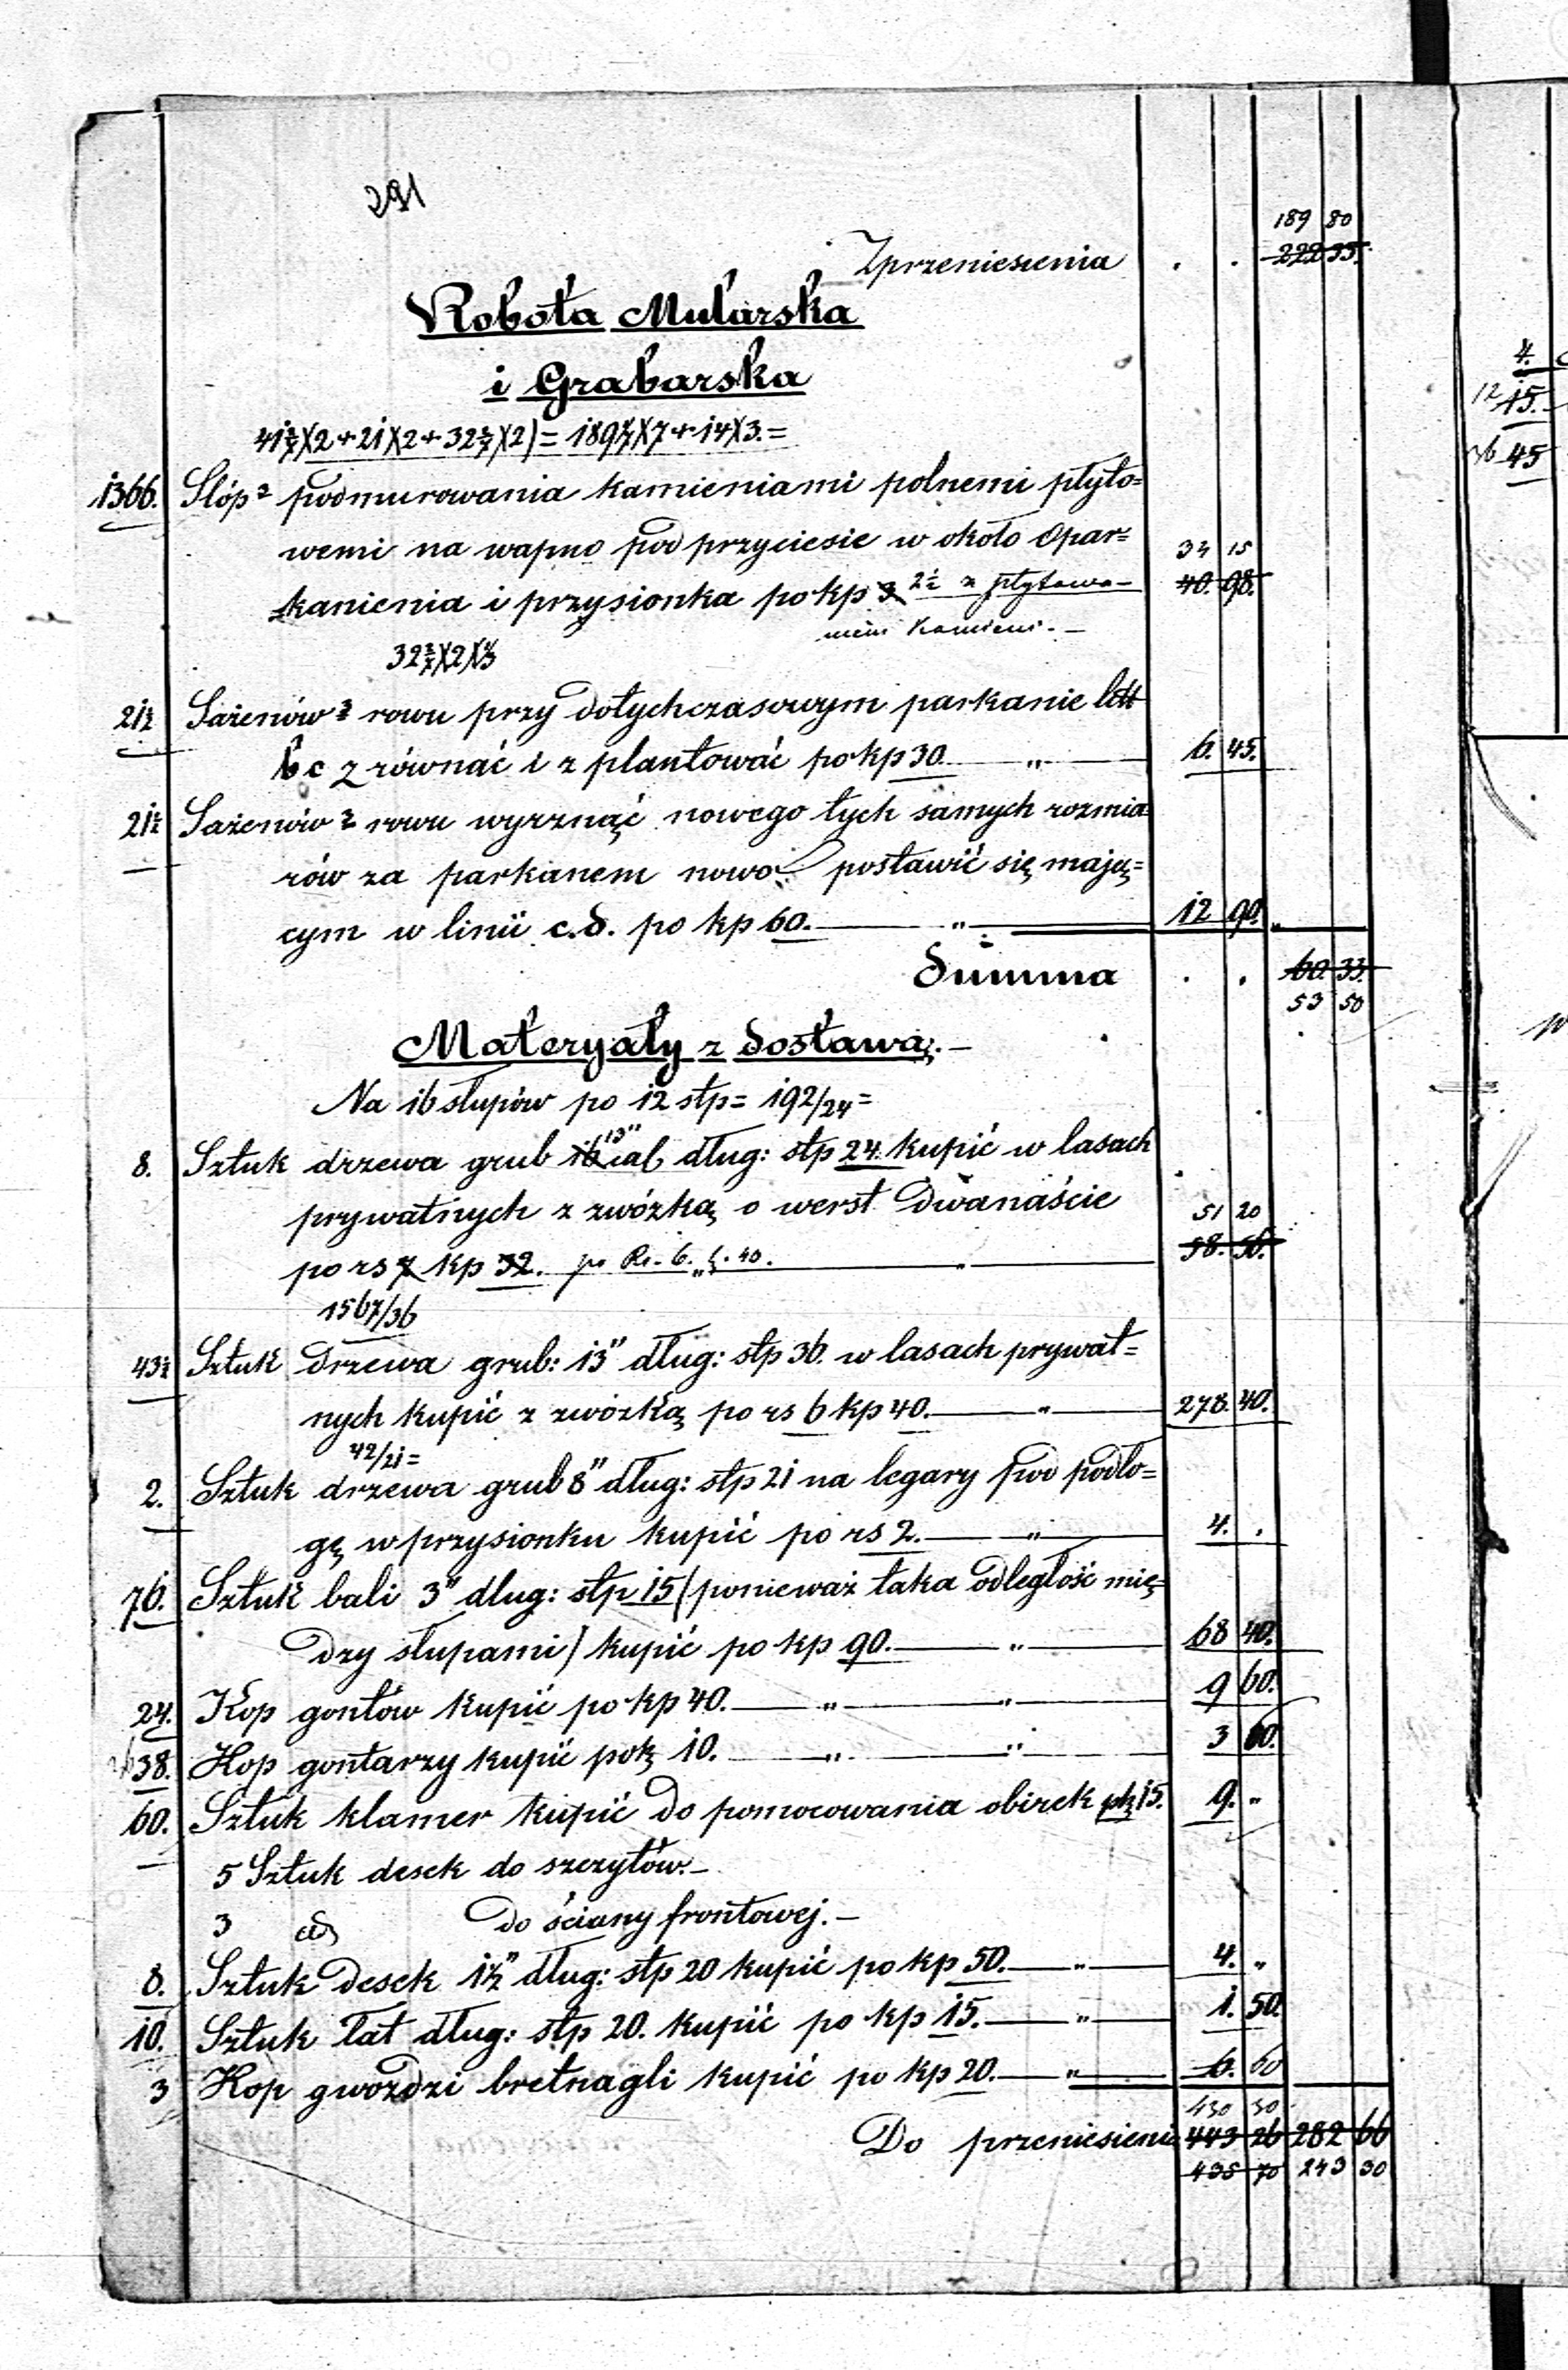 291
189 80
Zprzeniesienia . . ~~222 33.~~
Robota Mularska
i Grabarska
41 2/7)(2+21)(2+32 2/7)(2)=189 4/7)(7+14)(3.=
1366. Stóp² podmurowania kamieniami polnemi płyto=
wemi na wapno pod przyciesie w około Opar=
34 15
kanienia i przysionka po kp ~~3~~ 2½ z płytowe- ~~40. 98.~~
mi kamieni. -
32 2/7)(2)(1/3
21½ Sażenów² rowu przy dotychczasowym parkanie litt
b c zrównać i z plantować po kp 30. — „ — 6. 45.
21½ Sażenów² rowu wyrznąć nowego tych samych rozmia=
rów za parkanem nowo postawić się mają=
cym w linii c.d. po kp 60. — „ — 12 90. „
Summa . . ~~60. 33.~~
53 50
Materyały z dostawą. -
Na 16 słupów po 12 stp = 192/24 =
8. Sztuk drzewa grub ~~16 cal~~ 13" dług: stp 24. kupić w lasach
prywatnych z zwózką o werst dwanaście
51 20
po rs ~~7~~ kp ~~32~~. po Rs. 6. k. 40. — „ — ~~58. 56.~~
1567/36
43½ Sztuk drzewa grub: 13" dług: stp 36. w lasach prywat=
nych kupić z zwózką po rs 6 kp 40. — „ — 278. 40.
42/21=
2. Sztuk drzewa grub 8" dług: stp 21 na legary pod podło=
gę w przysionku kupić po rs 2. — „ — 4. .
76. Sztuk bali 3" dług: stp 15 (ponieważ taka odległość mię=
dzy słupami) kupić po kp 90. — „ — 68 40.
24. Kop gontów kupić po kp 40. — „ — „ — 9 60.
36 38. Kop gontarzy kupić po k 10. — „ — „ — 3 60.
60. Sztuk klamer kupić do pomocowania obirek pk 15. 9. „
5 Sztuk desek do szczytów. -
3 do ściany frontowej. -
8. Sztuk desek 1½" dług: stp 20 kupić po kp 50. — „ — 4. „
10. Sztuk łat dług: stp 20. kupić po kp 15. — „ — 1. 50.
3 Kop gwoździ bretnagli kupić po kp 20. — „ — ~~6.~~ 60
430 30
Do przeniesienia ~~443 26~~ ~~282 66~~
~~435 70~~ 243 30
4.
12 15.
36 45